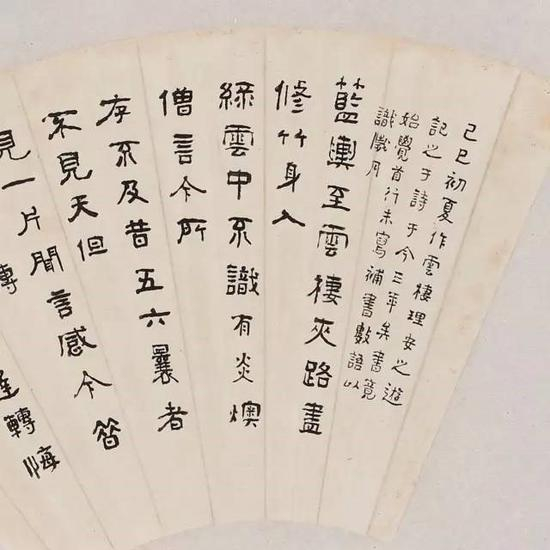 己巳初夏作雲棲理安之遊
記之于詩于今三年矣書竟
始覺首行未寫補書數語以
識歲月
籃輿至雲棲夾路盡
修竹身入
綠雲中不識有炎燠
僧言今所
存不及昔五六曩者
不見天但
見一片聞言感今
傳
轉